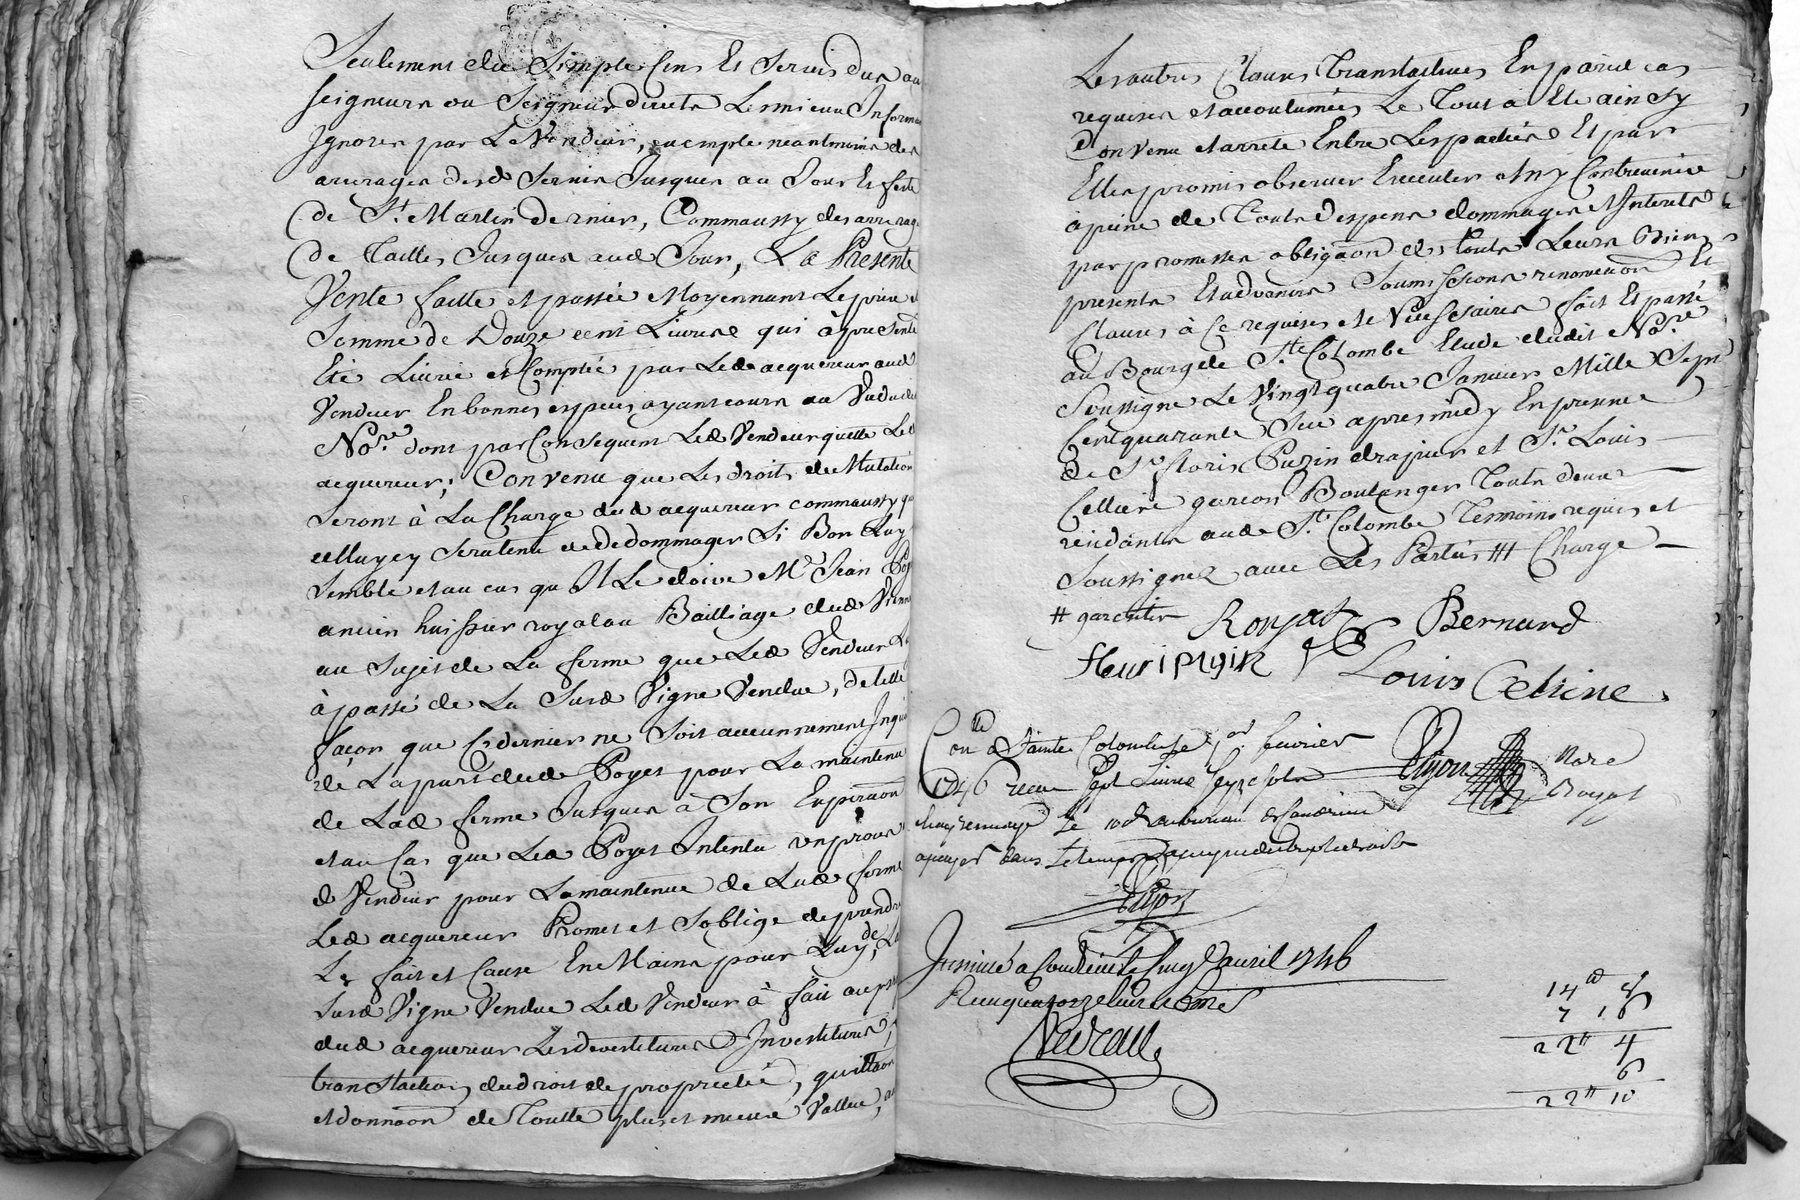 Seulement du Simple Cens Et Servis dus au
Seigneurs ou Seigneur directs Les mieux Informé
Ignorés par Le Vendeur, exempte neantmoins des
arrerages desd Servis Jusques au Jour Et feste
de St. Martin dernier, Commaussy des arrerage
de Tailles Jusques aud Jour, La Presente
Vente faitte et passée Moyennant Le prix et
Somme de Douze cent Livres qui à presente
Eté Livrée et Comptée par Led acquereur aud
Vendeur En bonnes especes ayant cours au Vu dudit
Nore. dont par Consequent Led Vendeur quitte Led
acquereur; Convenu que Les droits de Mutation
Seront à La Charge dud acquereur commaussy que
celluycy Sera tenu de dedommager Si Bon Luy
Semble et au cas qu Il Le doive Me. Jean Poyet
ancien huissier royal au Bailliage dud Vienne
au Sujet de La ferme que Led Vendeur La
à passé de La Susd Vigne Vendue, de telle
façon que Ce dernier ne Soit aucunnement Inquie
té de La part dud Poyet pour La maintenue
de Lad ferme Jusques à Son Expiraon
et au Cas que Led Poyet Intenta un proces
d Vendeur pour La maintenue de Lad ferme
Led acquereur Promet et S oblige de prendre
Le fait et Cause En Mains pour Luy, de La
Susd Vigne Vendue Led Vendeur à fait au p
dud acquereur Les devestitures D Investitures,
translaction du droit de proprieté, quittaon
et donnaon de Toutte plus et meuve Valleu,
Les autres Clauses Translactives En pareil cas
requises et accoutumées Le Tout à Eté ainsy
Convenu et arreté Entre Les parties Et par
Elles promis observer Executer et ny Contrevenire
à peine de Touts depens dommages et Interets
par promesses obligaon de touts Leurs Biens
presents Et advenirs Soumissions renonciaon Et
Clauses à Ce requises et Necessaires fait Et passé
au Bourg de Ste. Colombe Etude dudit Nore.
Soussigné Le Vingt quatre Janvier Mille Sept
Cent quarante Six apres midy En presence
de Sr. floris Puzin drapier et Sr. Louis
Celliere garcon Boulanger Touts deux
residants aud St. Colombe Temoins requis et
Soussignez avec Les Parties # Charge
# garentir Ronjat Bernard
fleuri puzin Louis Celiere
Conlle a Sainte Colombe Le per fevrier
1746 recu Sept Livres Seize sols
Nore
Royal
Insinué a Condrieu Le Cinq d'avril 1746
14 tt 8
7 16
22 tt 4
6
22 tt 10